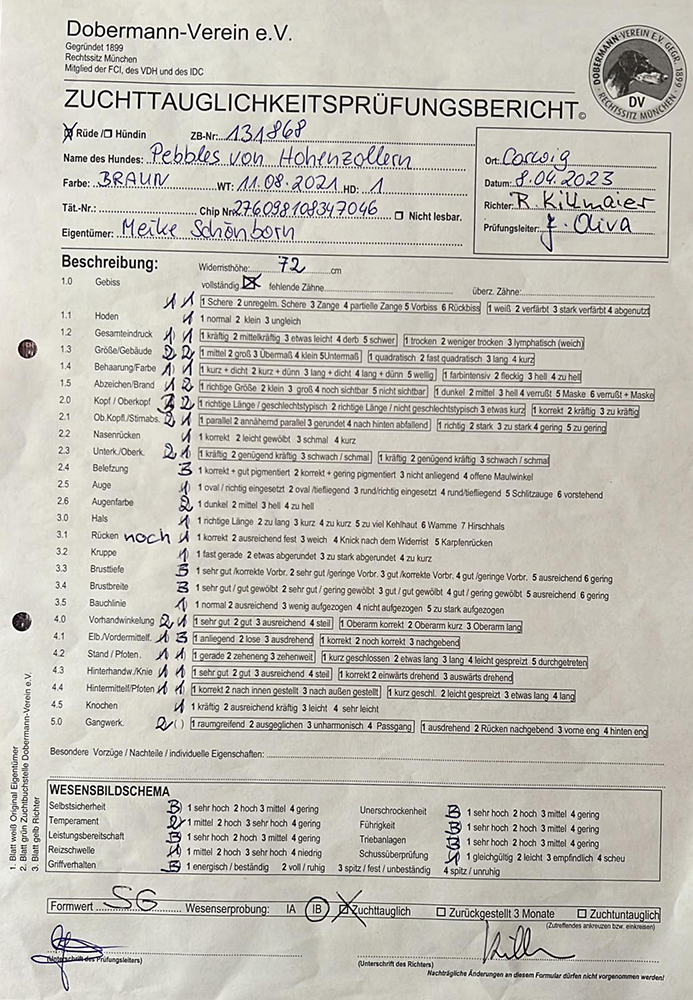 Dobermann-Verein e.V.
Gegründet 1899
Rechtssitz München
Mitglied der FCI, des VDH und des IDC
DOBERMANN-VEREIN E.V. GEGR. 1899
RECHTSSITZ MÜNCHEN
DV
ZUCHTTAUGLICHKEITSPRÜFUNGSBERICHT©
Rüde / Hündin ZB-Nr.: 131868
Name des Hundes: Pebbles von Hohenzollern
Farbe: BRAUN WT: 11.08.2021 HD: 1
Tät.-Nr.: Chip Nr.: 276098108347046 Nicht lesbar.
Eigentümer: Meike Schönborn
Ort:
Datum: 8.04.2023
Richter: R. Killmaier
Prüfungsleiter: J. Oliva
Beschreibung: Widerristhöhe: 72 cm
1.0 Gebiss vollständig fehlende Zähne: überz. Zähne:
1 1 1 Schere 2 unregelm. Schere 3 Zange 4 partielle Zange 5 Vorbiss 6 Rückbiss 1 weiß 2 verfärbt 3 stark verfärbt 4 abgenutzt
1.1 Hoden 1 1 normal 2 klein 3 ungleich
1.2 Gesamteindruck 1 1 1 kräftig 2 mittelkräftig 3 etwas leicht 4 derb 5 schwer 1 trocken 2 weniger trocken 3 lymphatisch (weich)
1.3 Größe/Gebäude 2 2 1 mittel 2 groß 3 Übermaß 4 klein 5Untermaß 1 quadratisch 2 fast quadratisch 3 lang 4 kurz
1.4 Behaarung/Farbe 1 1 1 kurz + dicht 2 kurz + dünn 3 lang + dicht 4 lang + dünn 5 wellig 1 farbintensiv 2 fleckig 3 hell 4 zu hell
1.5 Abzeichen/Brand 1 2 1 richtige Größe 2 klein 3 groß 4 noch sichtbar 5 nicht sichtbar 1 dunkel 2 mittel 3 hell 4 verrußt 5 Maske 6 verrußt + Maske
2.0 Kopf / Oberkopf 3 2 1 richtige Länge / geschlechtstypisch 2 richtige Länge / nicht geschlechtstypisch 3 etwas kurz 1 korrekt 2 kräftig 3 zu kräftig
2.1 Ob.Kopfl./Stirnabs. 2 1 1 parallel 2 annähernd parallel 3 gerundet 4 nach hinten abfallend 1 richtig 2 stark 3 zu stark 4 gering 5 zu gering
2.2 Nasenrücken 1 1 korrekt 2 leicht gewölbt 3 schmal 4 kurz
2.3 Unterk./Oberk. 2 1 1 kräftig 2 genügend kräftig 3 schwach / schmal 1 kräftig 2 genügend kräftig 3 schwach / schmal
2.4 Belefzung 3 1 korrekt + gut pigmentiert 2 korrekt + gering pigmentiert 3 nicht anliegend 4 offene Maulwinkel
2.5 Auge 1 1 oval / richtig eingesetzt 2 oval /tiefliegend 3 rund/richtig eingesetzt 4 rund/tiefliegend 5 Schlitzauge 6 vorstehend
2.6 Augenfarbe 2 1 dunkel 2 mittel 3 hell 4 zu hell
3.0 Hals 1 1 richtige Länge 2 zu lang 3 kurz 4 zu kurz 5 zu viel Kehlhaut 6 Wamme 7 Hirschhals
3.1 Rücken noch 1 1 korrekt 2 ausreichend fest 3 weich 4 Knick nach dem Widerrist 5 Karpfenrücken
3.2 Kruppe 1 1 fast gerade 2 etwas abgerundet 3 zu stark abgerundet 4 zu kurz
3.3 Brusttiefe 3 1 sehr gut /korrekte Vorbr. 2 sehr gut /geringe Vorbr. 3 gut /korrekte Vorbr. 4 gut /geringe Vorbr. 5 ausreichend 6 gering
3.4 Brustbreite 3 1 sehr gut / gut gewölbt 2 sehr gut / gering gewölbt 3 gut / gut gewölbt 4 gut / gering gewölbt 5 ausreichend 6 gering
3.5 Bauchlinie 1 1 normal 2 ausreichend 3 wenig aufgezogen 4 nicht aufgezogen 5 zu stark aufgezogen
4.0 Vorhandwinkelung 2 1 1 sehr gut 2 gut 3 ausreichend 4 steil 1 Oberarm korrekt 2 Oberarm kurz 3 Oberarm lang
4.1 Elb./Vordermittelf. 1 3 1 anliegend 2 lose 3 ausdrehend 1 korrekt 2 noch korrekt 3 nachgebend
4.2 Stand / Pfoten 1 1 1 gerade 2 zeheneng 3 zehenweit 1 kurz geschlossen 2 etwas lang 3 lang 4 leicht gespreizt 5 durchgetreten
4.3 Hinterhandw./Knie 1 1 1 sehr gut 2 gut 3 ausreichend 4 steil 1 korrekt 2 einwärts drehend 3 auswärts drehend
4.4 Hintermittelf/Pfoten 1 1 1 korrekt 2 nach innen gestellt 3 nach außen gestellt 1 kurz geschl. 2 leicht gespreizt 3 etwas lang 4 lang
4.5 Knochen 1 1 kräftig 2 ausreichend kräftig 3 leicht 4 sehr leicht
5.0 Gangwerk. 2 ( ) 1 raumgreifend 2 ausgeglichen 3 unharmonisch 4 Passgang 1 ausdrehend 2 Rücken nachgebend 3 vorne eng 4 hinten eng
Besondere Vorzüge / Nachteile / individuelle Eigenschaften:
WESENSBILDSCHEMA
Selbstsicherheit 3 1 sehr hoch 2 hoch 3 mittel 4 gering Unerschrockenheit 3 1 sehr hoch 2 hoch 3 mittel 4 gering
Temperament 2 1 mittel 2 hoch 3 sehr hoch 4 gering Führigkeit 3 1 sehr hoch 2 hoch 3 mittel 4 gering
Leistungsbereitschaft 3 1 sehr hoch 2 hoch 3 mittel 4 gering Triebanlagen 3 1 sehr hoch 2 hoch 3 mittel 4 gering
Reizschwelle 1 1 mittel 2 hoch 3 sehr hoch 4 niedrig Schussüberprüfung 1 1 gleichgültig 2 leicht 3 empfindlich 4 scheu
Griffverhalten 3 1 energisch / beständig 2 voll / ruhig 3 spitz / fest / unbeständig 4 spitz / unruhig
Formwert SG Wesenserprobung: IA IB Zuchttauglich Zurückgestellt 3 Monate Zuchtuntauglich
(Zutreffendes ankreuzen bzw. einkreisen)
(Unterschrift des Prüfungsleiters) (Unterschrift des Richters)
Nachträgliche Änderungen an diesem Formular dürfen nicht vorgenommen werden!
1. Blatt weiß Original Eigentümer
2. Blatt grün Zuchtbuchstelle Dobermann-Verein e.V.
3. Blatt gelb Richter